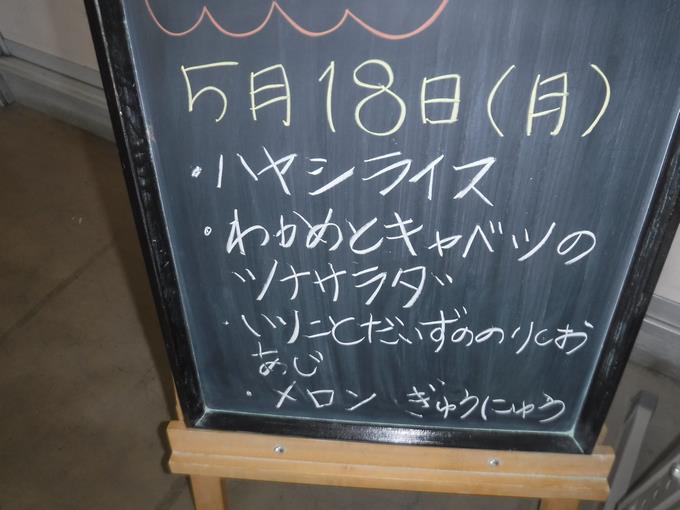 5月18日(月)
・ハヤシライス
・わかめとキャベツの
ツナサラダ
・いりことだいずののりしお
あじ
・メロン ぎゅうにゅう